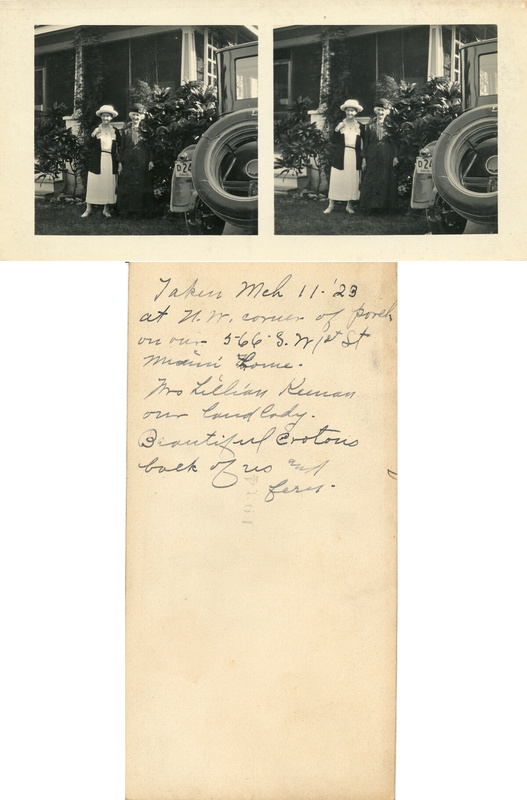 D 24
Taken Mch 11-'23
at N.W. corner of porch
on our 566 S.W 1st St
Miami home.
Mrs Lillian Keenan
our landlady.
Beautiful Crotons
back of us and
fern.